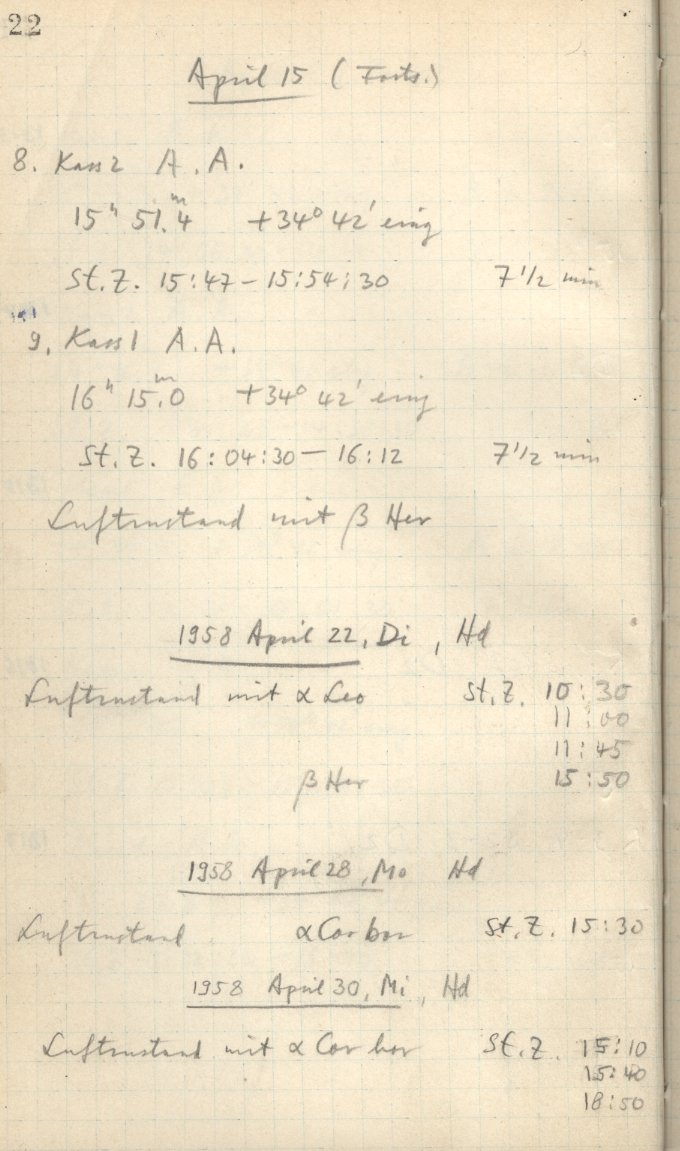 22
April 15 (Forts.)
8. Kass 2 A.A.
15ʰ 51.ᵐ4 +34° 42' eing
St.Z. 15:47 – 15:54:30 7 1/2 min
9. Kass 1 A.A.
16ʰ 15.ᵐ0 +34° 42' eing
St.Z. 16:04:30 – 16:12 7 1/2 min
Luftzustand mit β Her
1958 April 22, Di, Hd
Luftzustand mit α Leo St.Z. 10:30
11:00
11:45
β Her 15:50
1958 April 28, Mo Hd
Luftzustand α Cor bor St.Z. 15:30
1958 April 30, Mi, Hd
Luftzustand mit α Cor bor St.Z. 15:10
15:40
18:50